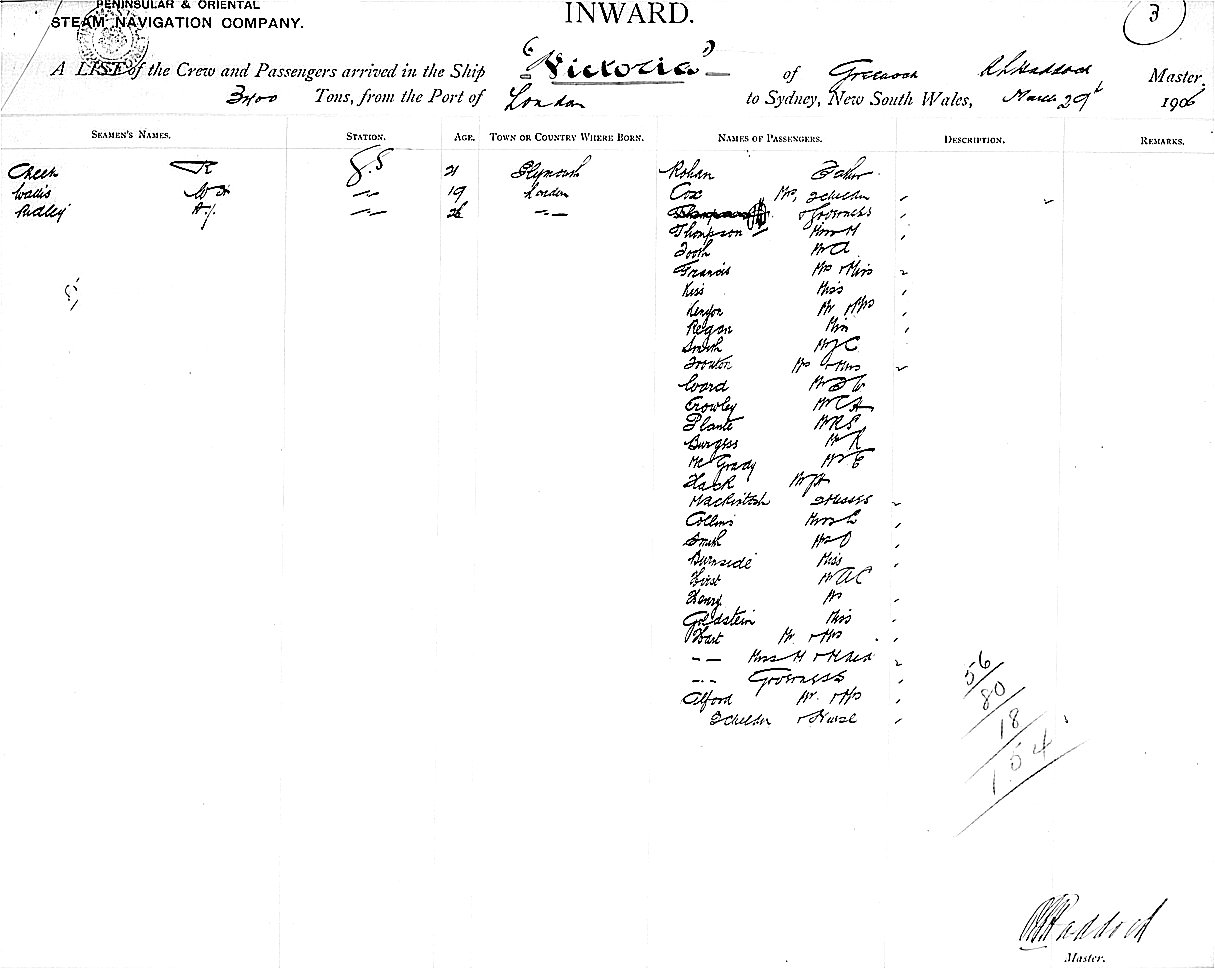 PENINSULAR & ORIENTAL
STEAM NAVIGATION COMPANY.
INWARD.
3
A LIST of the Crew and Passengers arrived in the Ship "Victoria" of Greenock Master,
3400 Tons, from the Port of London to Sydney, New South Wales, March 29th 1906
SEAMEN'S NAMES. STATION. AGE. TOWN OR COUNTRY WHERE BORN. NAMES OF PASSENGERS. DESCRIPTION. REMARKS.
Cheek R G.S 21 Plymouth Rohan
Wallis Wm 19 London Cox Mrs, 2 children
Ridley A.J. 26 Governess
Thompson Miss M
Tooth Mr A
Francis Mrs & Miss
Kiss Miss
Kenyon Mr & Mrs
Regan Miss
Smith Mr J C
Trouton Mr & Miss
Ward
Crowley Mr C A
Plante Mr R S
Burgess Mr R
Mc Grady Mr E
Hack Mr A
Mackintosh 2 Misses
Collins
Smith
Burnside Miss
Hirst Mr A C
Henry
Goldstein Miss
Hart Mr & Mrs
Miss M &
Governess
Alford Mr & Mrs
2 children & Nurse
56
80
18
154
Haddock
Master.